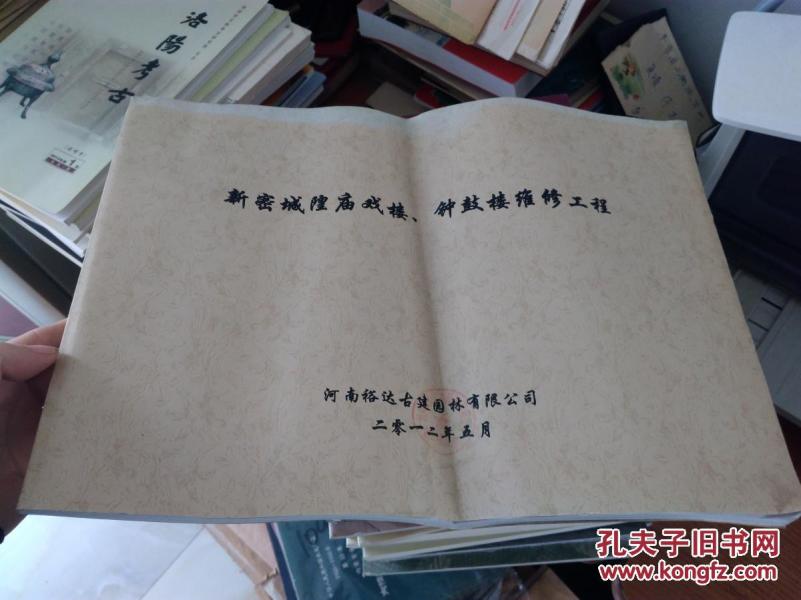 洛阳考古
新密城隍庙戏楼、钟鼓楼维修工程
河南裕达古建园林有限公司
二零一二年五月
孔夫子旧书网
www.kongfz.com